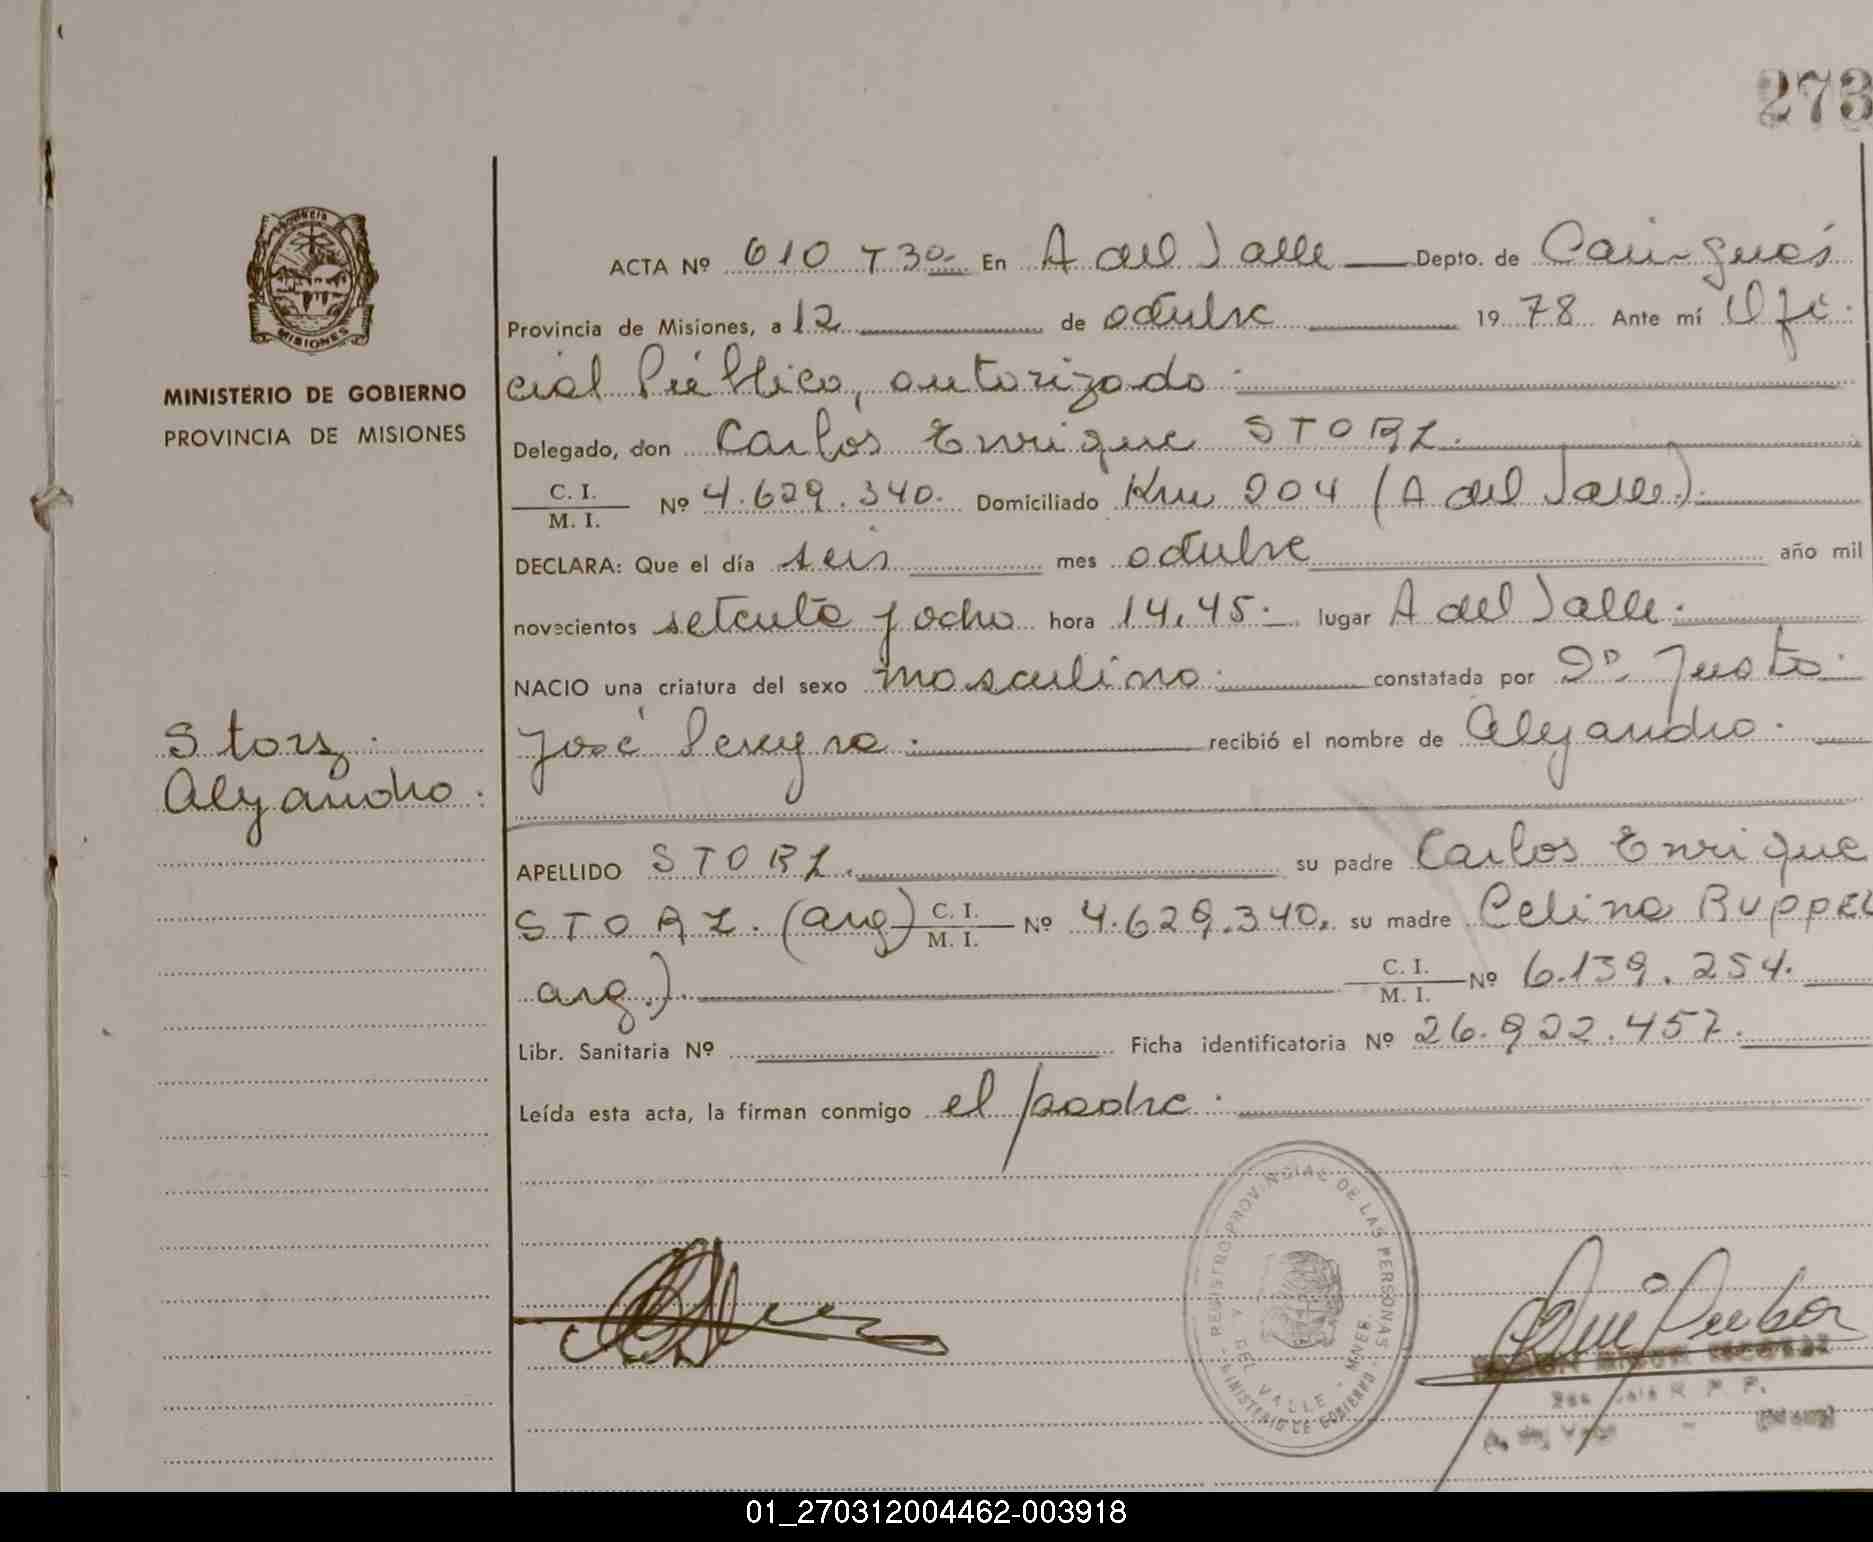 273
ACTA Nº 610 T3º En A del Valle Depto. de Cain-guás
Provincia de Misiones, a 12 de octubre 1978 Ante mí Ofi-
cial Público, autorizado
MINISTERIO DE GOBIERNO
PROVINCIA DE MISIONES
Delegado, don Carlos Enrique STORZ.
C. I. / M. I. Nº 4.629.340. Domiciliado Km 204 (A del Valle).
DECLARA: Que el día seis mes octubre año mil
novecientos setenta y ocho hora 14,45 lugar A del Valle.
NACIO una criatura del sexo masculino. constatada por Dº. Justo
José Pereyra. recibió el nombre de Alejandro.
Storz.
Alejandro.
APELLIDO STORZ. su padre Carlos Enrique
STORZ. (arg) C. I. / M. I. Nº 4.629.340. su madre Celina RUPPEL
arg.). C. I. / M. I. Nº 6.139.254.
Libr. Sanitaria Nº Ficha identificatoria Nº 26.922.457.
Leída esta acta, la firman conmigo el padre.
REGISTRO PROVINCIAL DE LAS PERSONAS
A. DEL VALLE - MNES.
MINISTERIO DE GOBIERNO
01_270312004462-003918